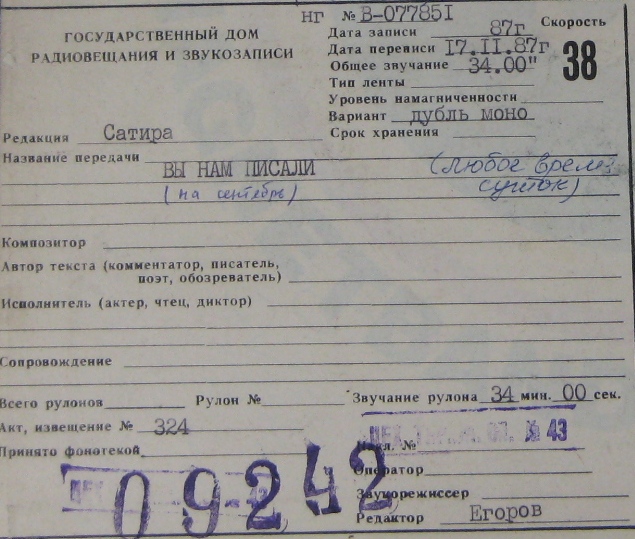 НГ № В-077851
ГОСУДАРСТВЕННЫЙ ДОМ
РАДИОВЕЩАНИЯ И ЗВУКОЗАПИСИ
Дата записи 87г
Дата переписи 17.II.87г
Общее звучание 34.00"
Тип ленты
Уровень намагниченности
Вариант дубль моно
Срок хранения
Скорость
38
Редакция Сатира
Название передачи
ВЫ НАМ ПИСАЛИ (любое время
(на сентябрь) суток)
Композитор
Автор текста (комментатор, писатель,
поэт, обозреватель)
Исполнитель (актер, чтец, диктор)
Сопровождение
Всего рулонов Рулон № Звучание рулона 34 мин. 00 сек.
Акт, извещение № 324
№ 43
Принято фонотекой
Накл. №
Оператор
09242
Звукорежиссер
Редактор Егоров